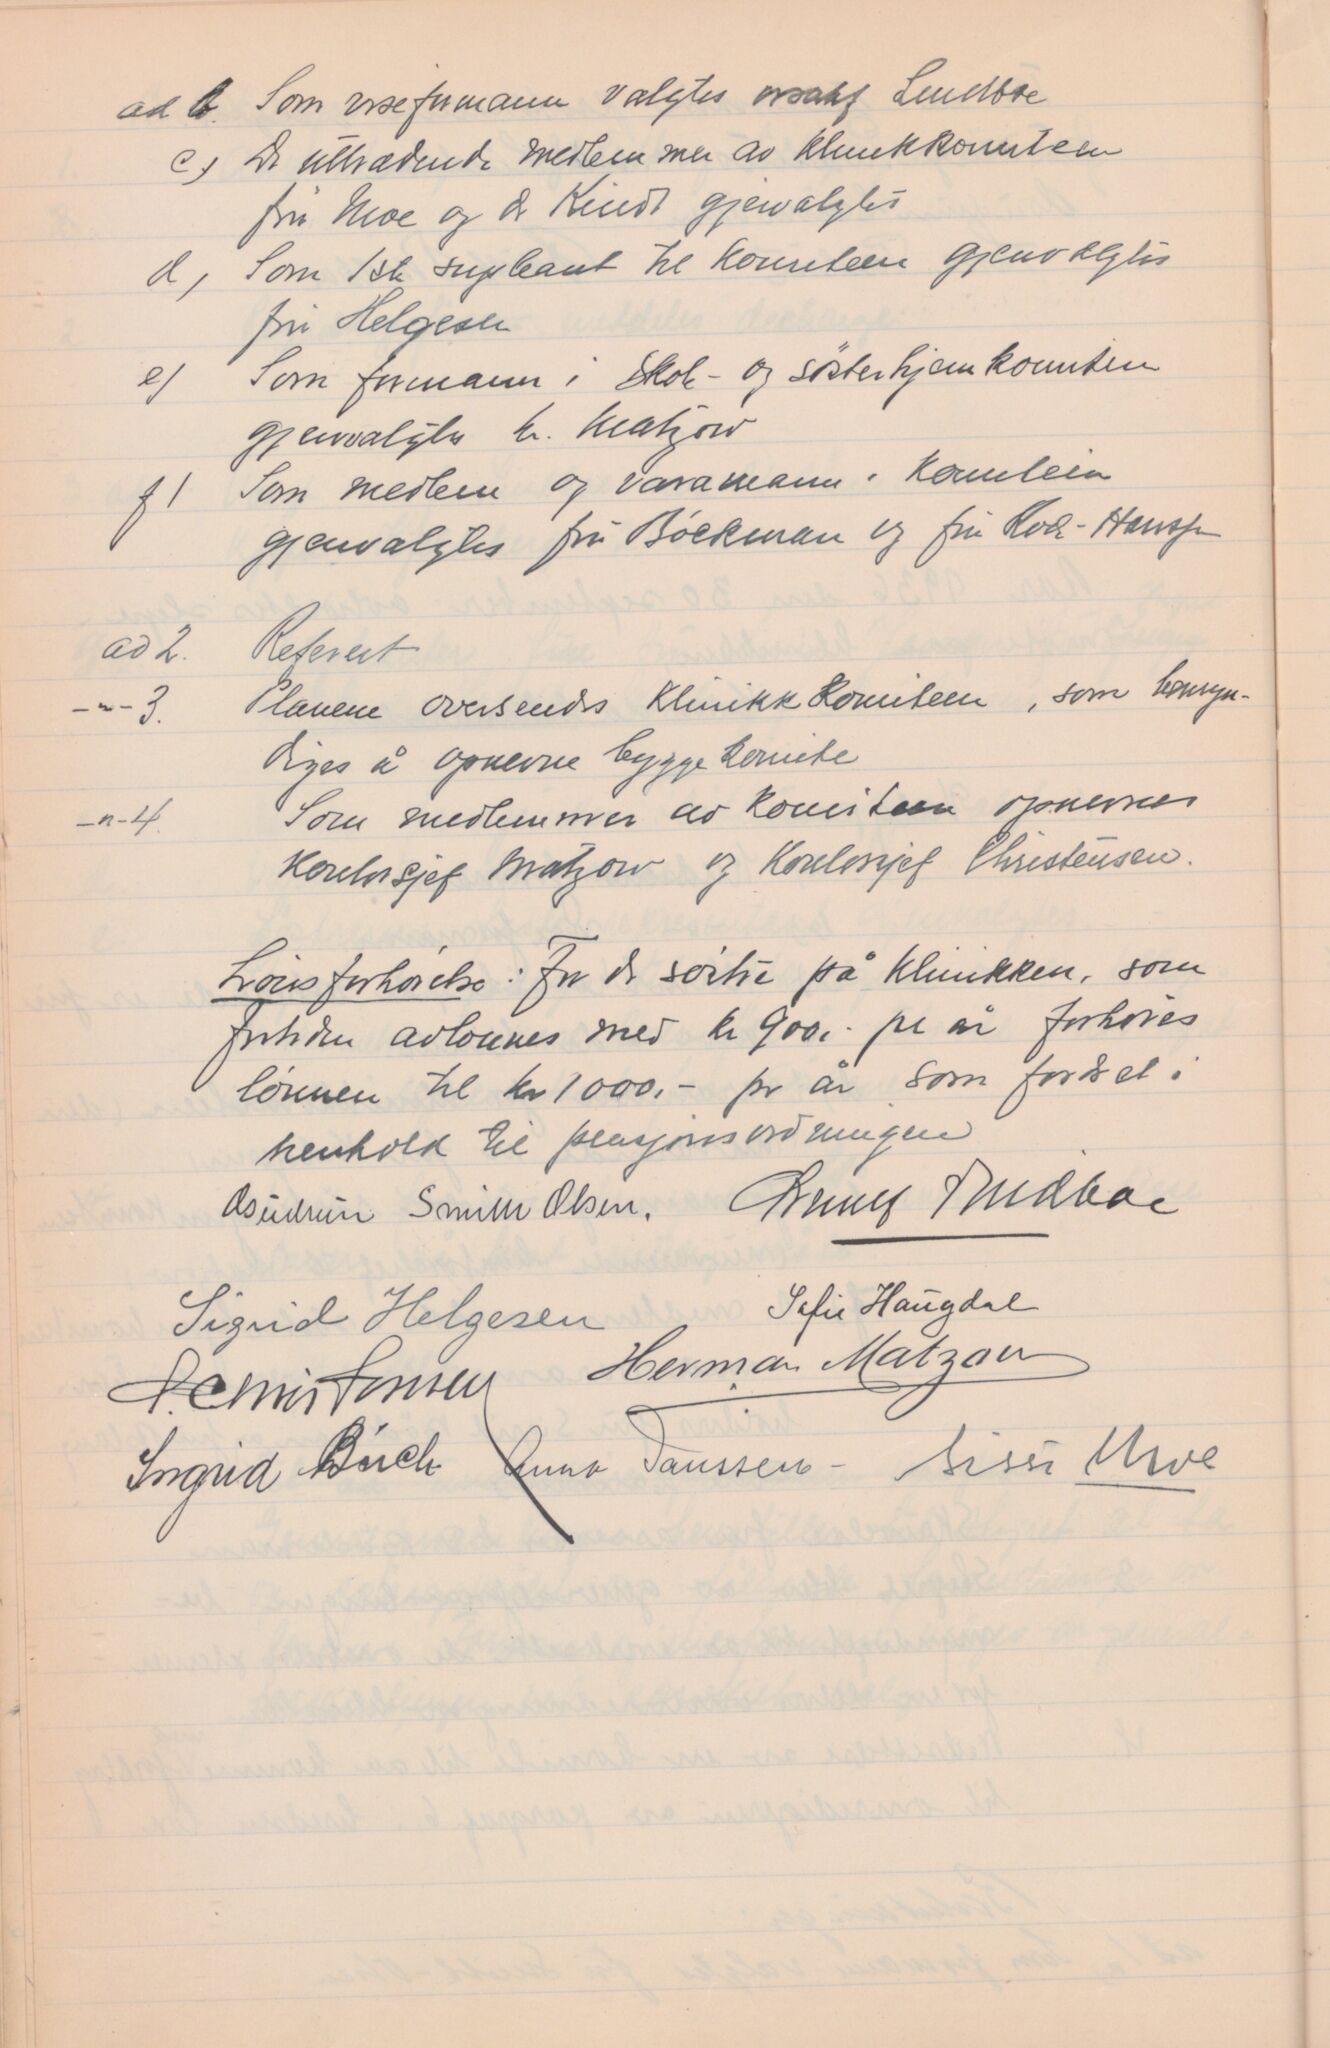 ad b. Som viseformann valgtes Lindboe
c) De uttredende medlemmer av klinikkomiteen
fru Moe og dr Kindt gjenvalgtes
d) Som 1ste supleant til komiteen gjenvalgtes
fru Helgesen
e) Som formann i skole- og søsterhjemkomiteen
gjenvalgtes hr. Matzow
f) Som medlem og varamann i komiteen
gjenvalgtes fru Bøckman og fru Hansen
ad 2. Referert
-"-3. Planene oversendes klinikkkomiteen, som bemyn-
diges å opnevne byggekomite
-"-4. Som medlemmer av komiteen opnevnes
kontorsjef Matzow og kontorsjef Christensen.
Lønsforhøielse: For de søstre på klinikken, som
fortiden avlønnes med kr 900,- pr år forhøies
lønnen til kr 1000,- pr år som fordret i
henhold til pensjonsordningen
Gudrun Smith Olsen. Lindboe
Sigrid Helgesen Sofie Haugdal
P. Christensen Herman Matzow
Ingrid Birch Anna Janssen - Sissi Moe